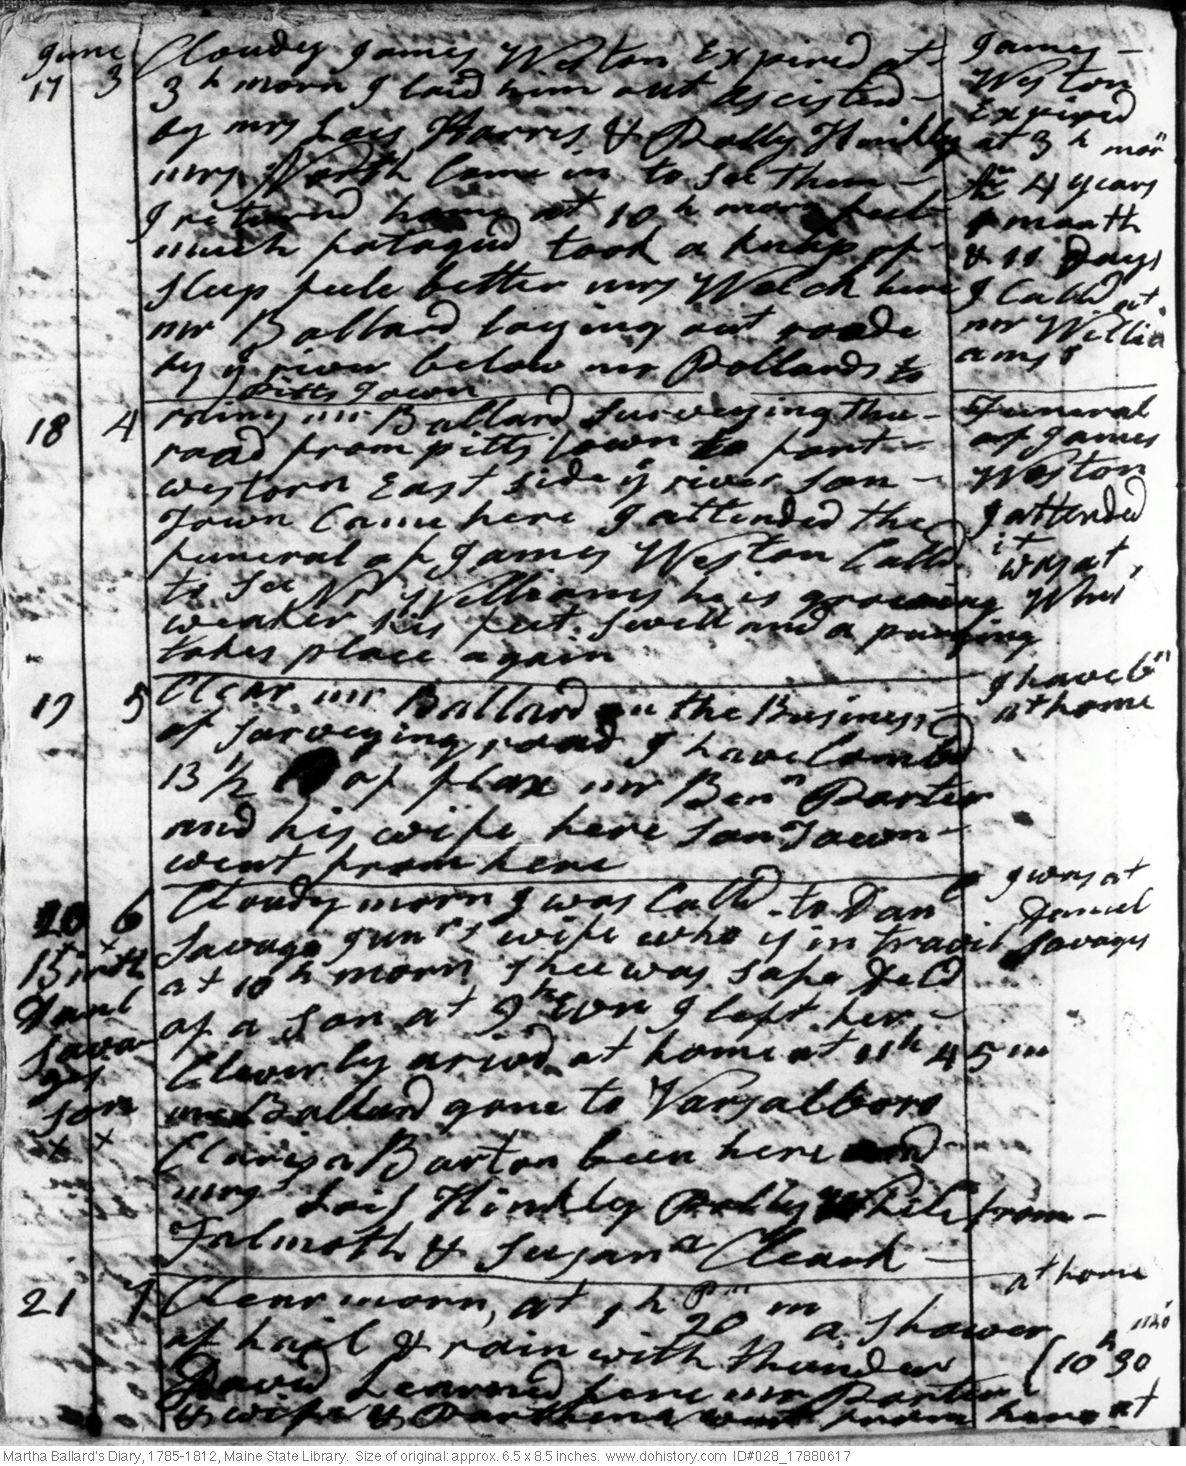 June
17 3
Cloudy James Weston Expired at
3 h morn I laid him out ascisted
by mrs Lois Harris & Polly Hinkly
mrs North Came in to See them
I returnd home at 10 h morn feel
much fatagud took a knap of
Sleep feele better mrs Welch here
mr Ballard laying out roade
by y river below mr Pollards to
Pitts Town
James
Weston
Expired
at 3 h morn
4 years
1 month
& 11 Days
I Calld at
mr Willi
ams
18 4
rainy mr Ballard Surveying the
road from pitts Town to fort
western East side y river Son
Town Came here I attended the
funeral of James Weston Calld
to See Mr Williams he is growing
weaker his feet Swell and a purging
takes place again
Funeral
of James
Weston
I attended
it
was at
Wms
19 5
Clear mr Ballard on the Business
of Surveying road I have Combd
13 1/2 of flax mr Benn Porter
and his wife here Son Town
went from here
I have bn
at home
20 6
Birth
Danl
Sava
ges
son
x x
Cloudy morn I was Calld to Danl
Savage Junrs wife who is in travil
at 10 h morn, Shee was safe Deld
of a Son at 9 h Evn I left her
Cleverly arivd at home at 11 h 45 m
mr Ballard gone to Varsalboro
Clarisa Barton been here and
mrs Lois Hinkly Polly White from
Falmoth & Susana Cleark
I was at
Daniel
Savages
21 7
Clear morn, at 1 h Pm 20 m a Shower
of hail & rain with thunder
David Learned here mr Porter
& wife & Parthena went from here at
at home
(10 h 30